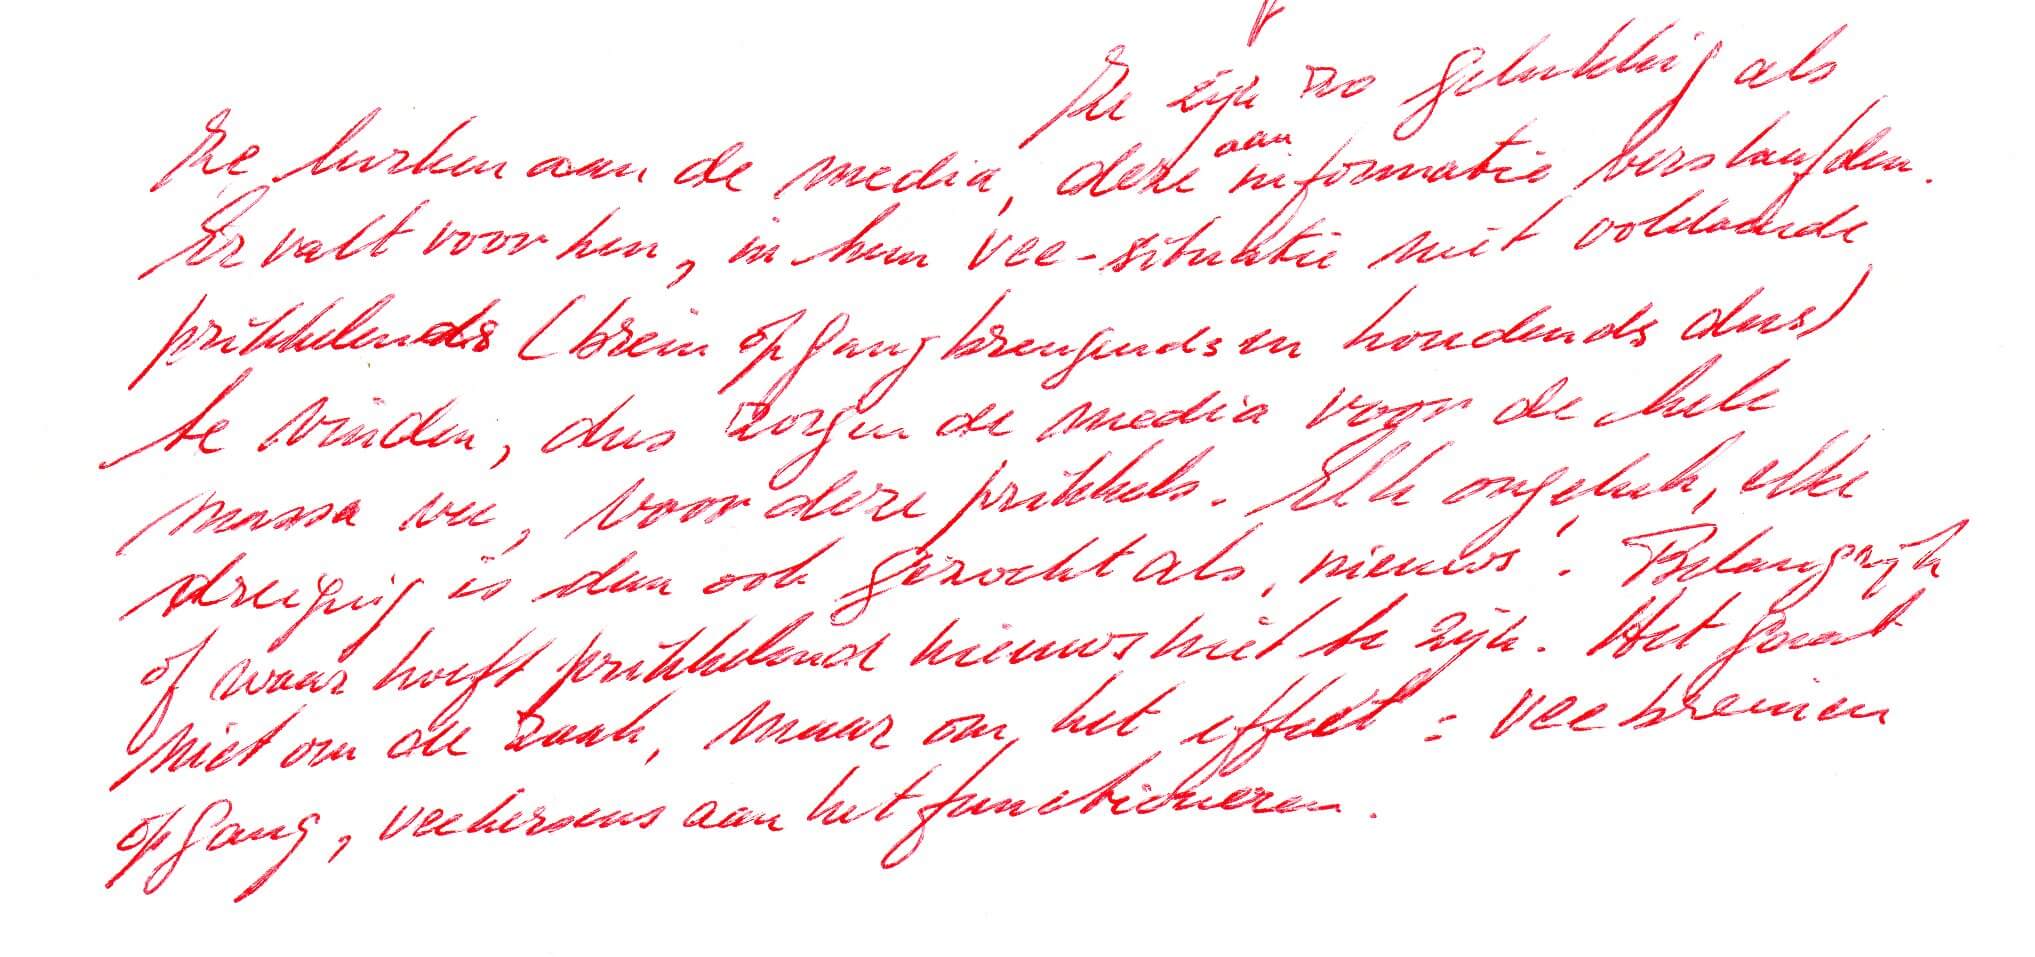 Ze zijn zo gelukkig als
Ze lurken aan de media, deze aan informatie verslaafden.
Er valt voor hen, in hun vee-situatie niet voldoende
prikkelends (brein op gang brengends en houdends dus)
te vinden, dus zorgen de media voor de hele
massa vee, voor deze prikkels. Elk ongeluk, elke
dreiging is dan ook gezocht als 'nieuws'. Belangrijk
of waar hoeft prikkelend nieuws niet te zijn. Het gaat
niet om de zaak, maar om het effect: veebreinen
op gang, veehersens aan het functioneren.